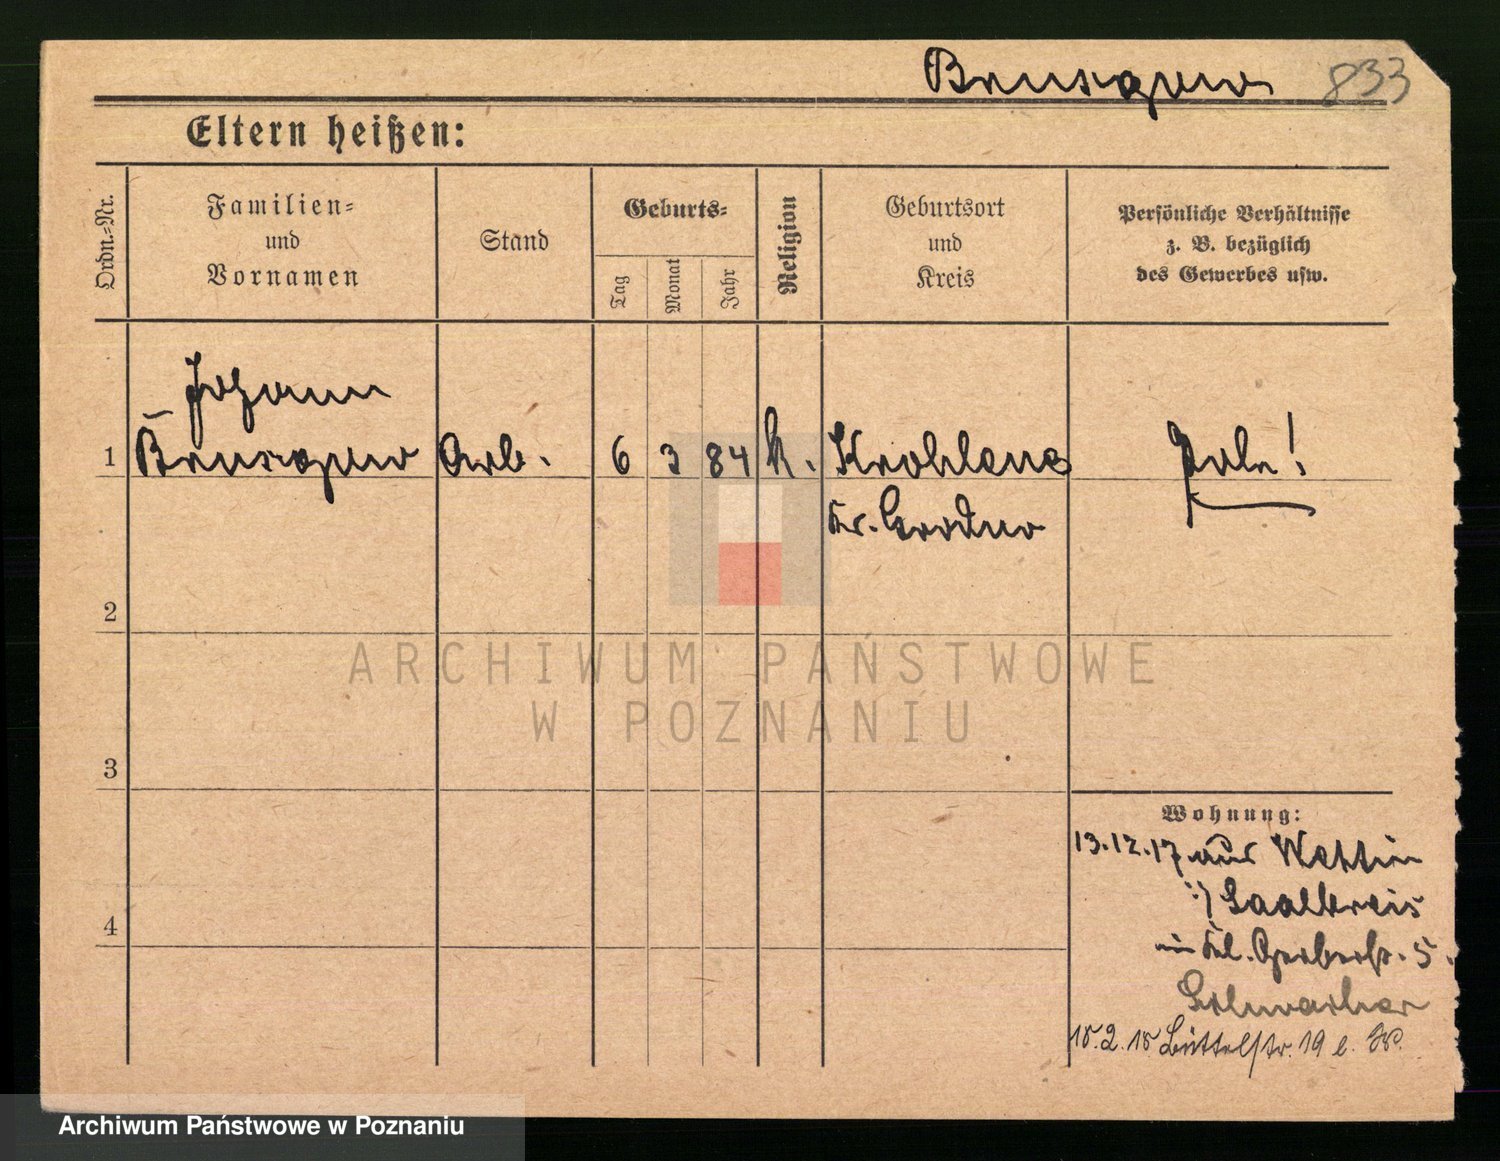 833
Eltern heißen:
Ordn.-Nr.
Familien-
und
Vornamen
Stand
Geburts-
Tag
Monat
Jahr
Religion
Geburtsort
und
Kreis
Persönliche Verhältnisse
z. B. bezüglich
des Gewerbes usw.
Johann
1
Arb.
6
3
84
k.
Kr. Grodno
Pole!
2
3
4
Wohnung:
13.12.17 aus Wettin
Saalkreis
in Kl. Gerberstr. 5.
Büttelstr. 19
ARCHIWUM PAŃSTWOWE
W POZNANIU
Archiwum Państwowe w Poznaniu